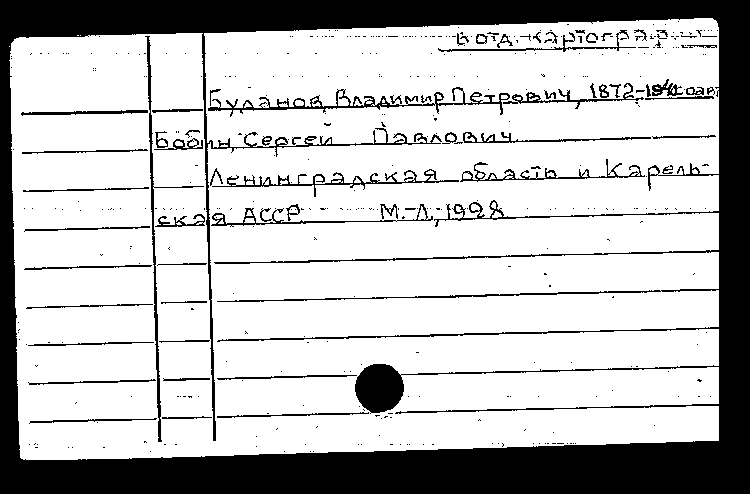 В отд. картограф.
Буданов, Владимир Петрович, 1872-
Бабин, Сергей Павлович
Ленинградская область и Карель-
ская АССР М.-Л., 1928